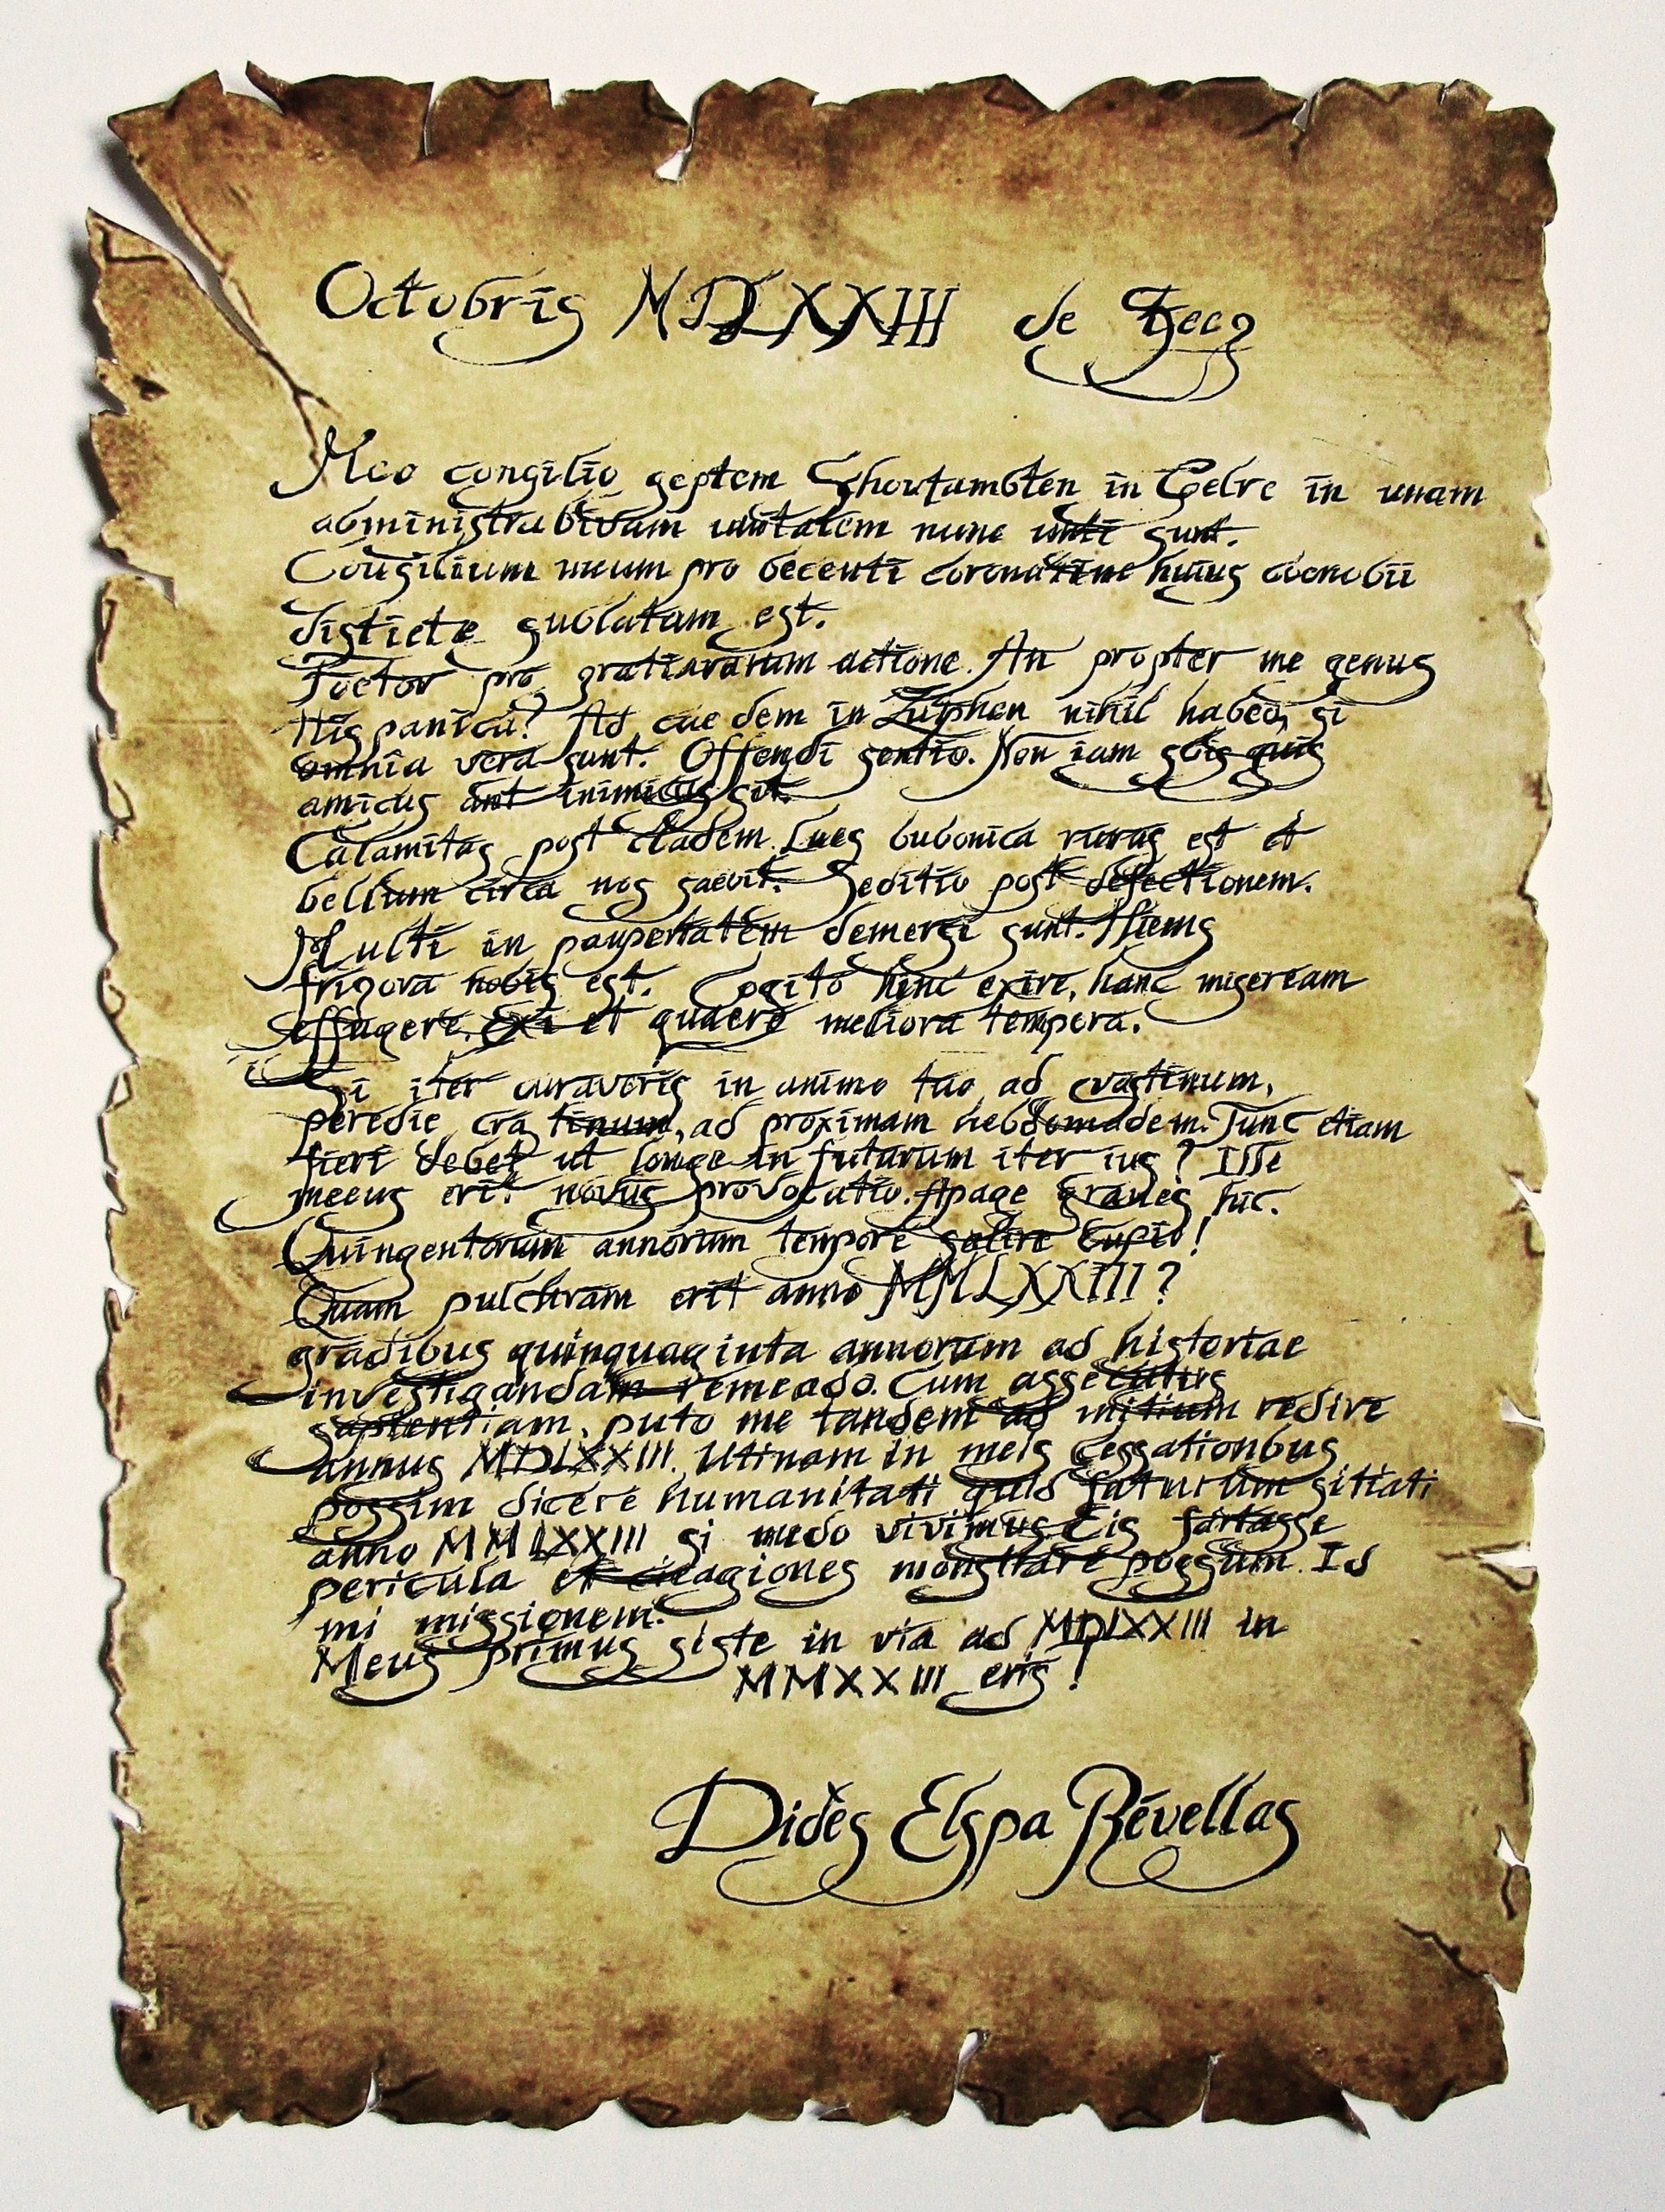 Octobris MDLXXIII de
Meo consilio septem in Gelre in unam
administrabivam unitatem nunc uniti sunt.
Consilium meum pro decenti coronatione huius coenobii
distiete sublatam est.
pro gratiararum actione. An propter me genus
Hispanicu? Ad eae dem in Zutphen nihil habeo, si
omnia vera sunt. Offendi sentio. Non iam scis quis
amicus aut inimicus sit.
Calamitas post cladem. Lues bubonica rursus est et
bellum circa nos saevit. Seditio post defectionem.
Multi in paupertatem demersi sunt. Hiems
frigora nobis est. Cogito hinc exire, hanc miseream
effugere. Exi et quaere meliora tempora.
Si iter curaveris in animo tuo ad crastinum,
peredie cra tinum, ad proximam hebdomadem. Tunc etiam
fieri debet ut longe in futurum iter ius? Isse
meeus erit novus provocatio. Apage graves hic.
Quingentorum annorum tempore salire cupio!
Quam pulchram erit anno MMLXXIII?
gradibus quinquaginta annorum ad historiae
investigandam remeado. Cum assecutus
sapientiam, puto me tandem ad initium redire
annus MDLXXIII. Utinam in meis cessationbus
possim dicere humanitati quid futurum sitiati
anno MMLXXIII si modo vivimus. Eis fortasse
pericula et monstrare possum. Id
mi missionem.
Meus primus siste in via ad MDLXXIII in
MMXXIII eris!
Didès Elspa Révellas